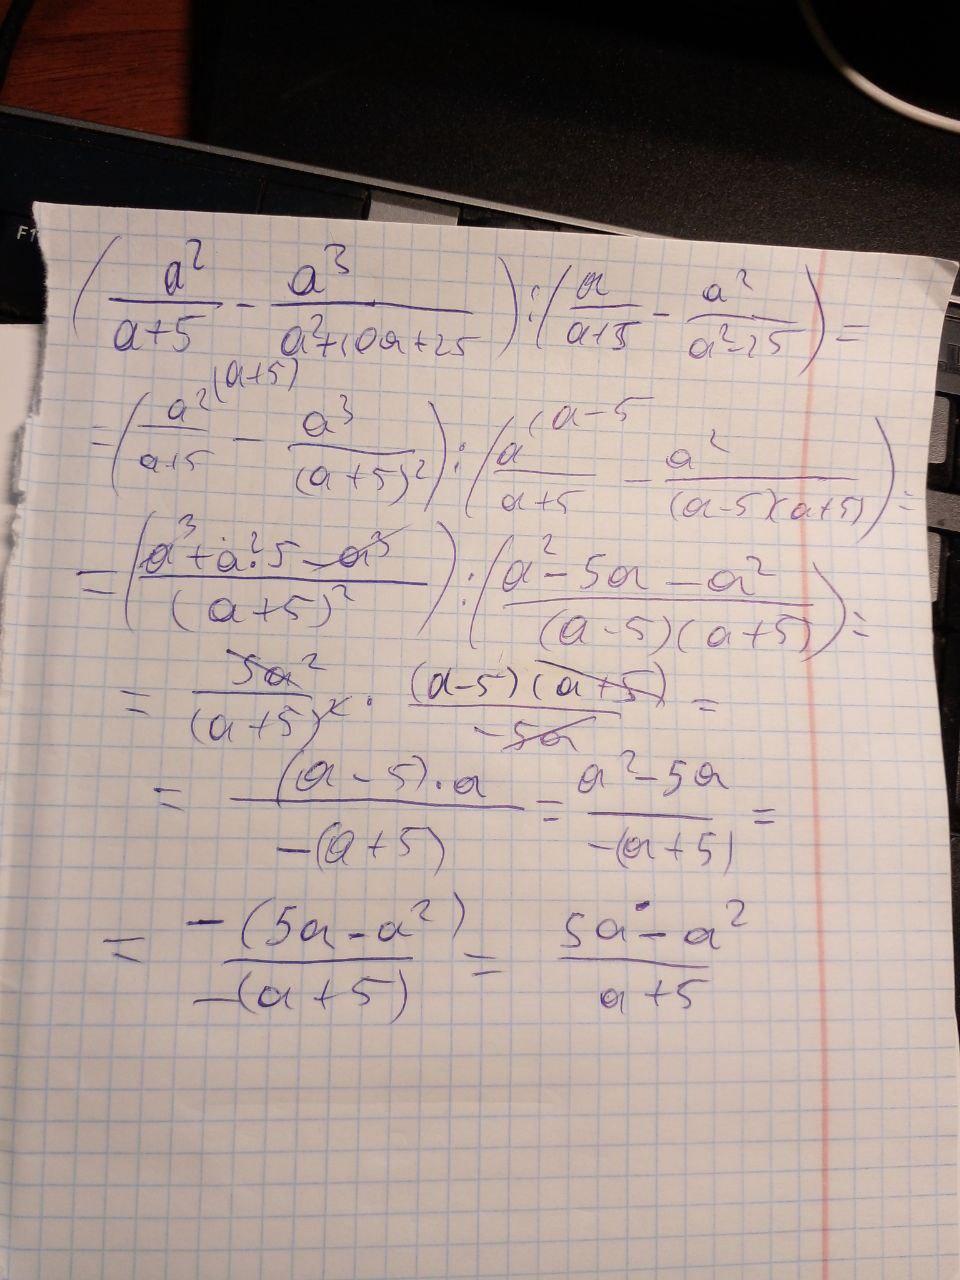 F1
(a²/(a+5) - a³/(a²+10a+25)) : (a/(a+5) - a²/(a²-25)) =
(a+5) (a-5
= (a²/(a+5) - a³/(a+5)²) : (a/(a+5) - a²/((a-5)(a+5))) =
= ((a³+a²·5-a³)/(a+5)²) : ((a²-5a-a²)/((a-5)(a+5))) =
= 5a²/(a+5)² · (a-5)(a+5)/(-5a) =
= (a-5)·a/(-(a+5)) = (a²-5a)/(-(a+5)) =
= -(5a-a²)/(-(a+5)) = (5a-a²)/(a+5)